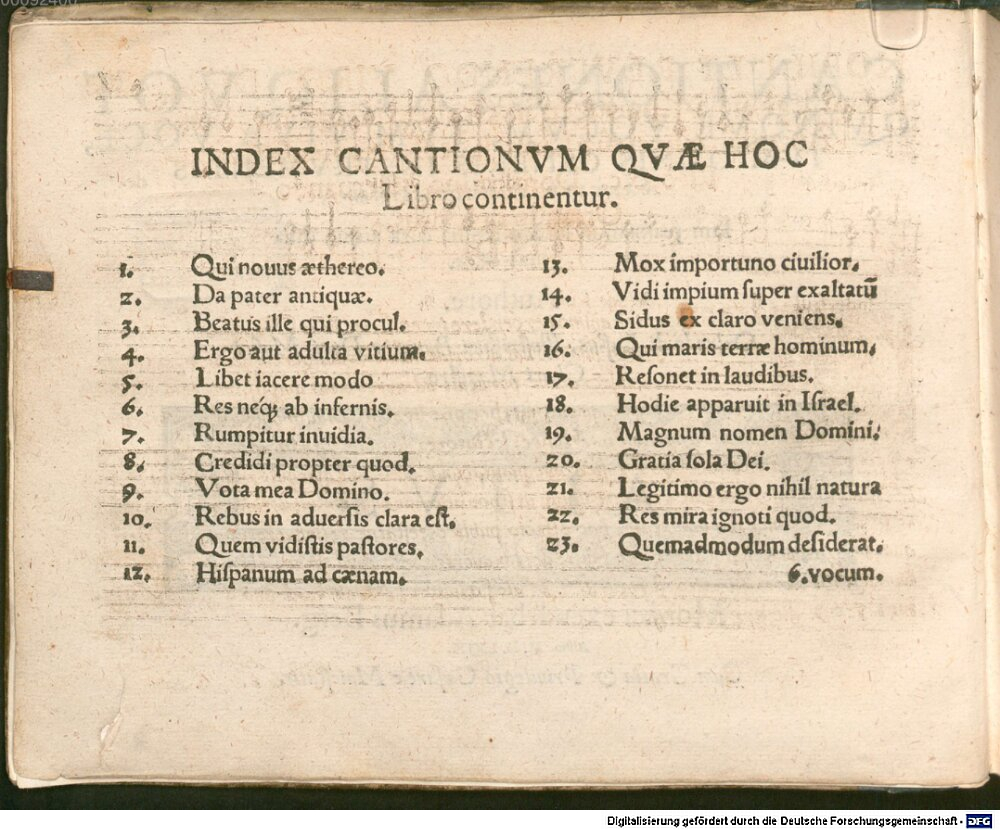 00092400
INDEX CANTIONVM QVÆ HOC
Libro continentur.
1. Qui nouus æthereo.
2. Da pater antiquæ.
3. Beatus ille qui procul.
4. Ergo aut adulta vitium.
5. Libet iacere modo
6. Res neq; ab infernis.
7. Rumpitur inuidia.
8. Credidi propter quod.
9. Vota mea Domino.
10. Rebus in aduerſis clara eſt.
11. Quem vidiſtis paſtores.
12. Hiſpanum ad cænam.
13. Mox importuno ciuilior.
14. Vidi impium ſuper exaltatū
15. Sidus ex claro veniens.
16. Qui maris terræ hominum.
17. Reſonet in laudibus.
18. Hodie apparuit in Iſrael.
19. Magnum nomen Domini.
20. Gratia ſola Dei.
21. Legitimo ergo nihil natura
22. Res mira ignoti quod.
23. Quemadmodum deſiderat.
6. vocum.
Digitalisierung gefördert durch die Deutsche Forschungsgemeinschaft - DFG